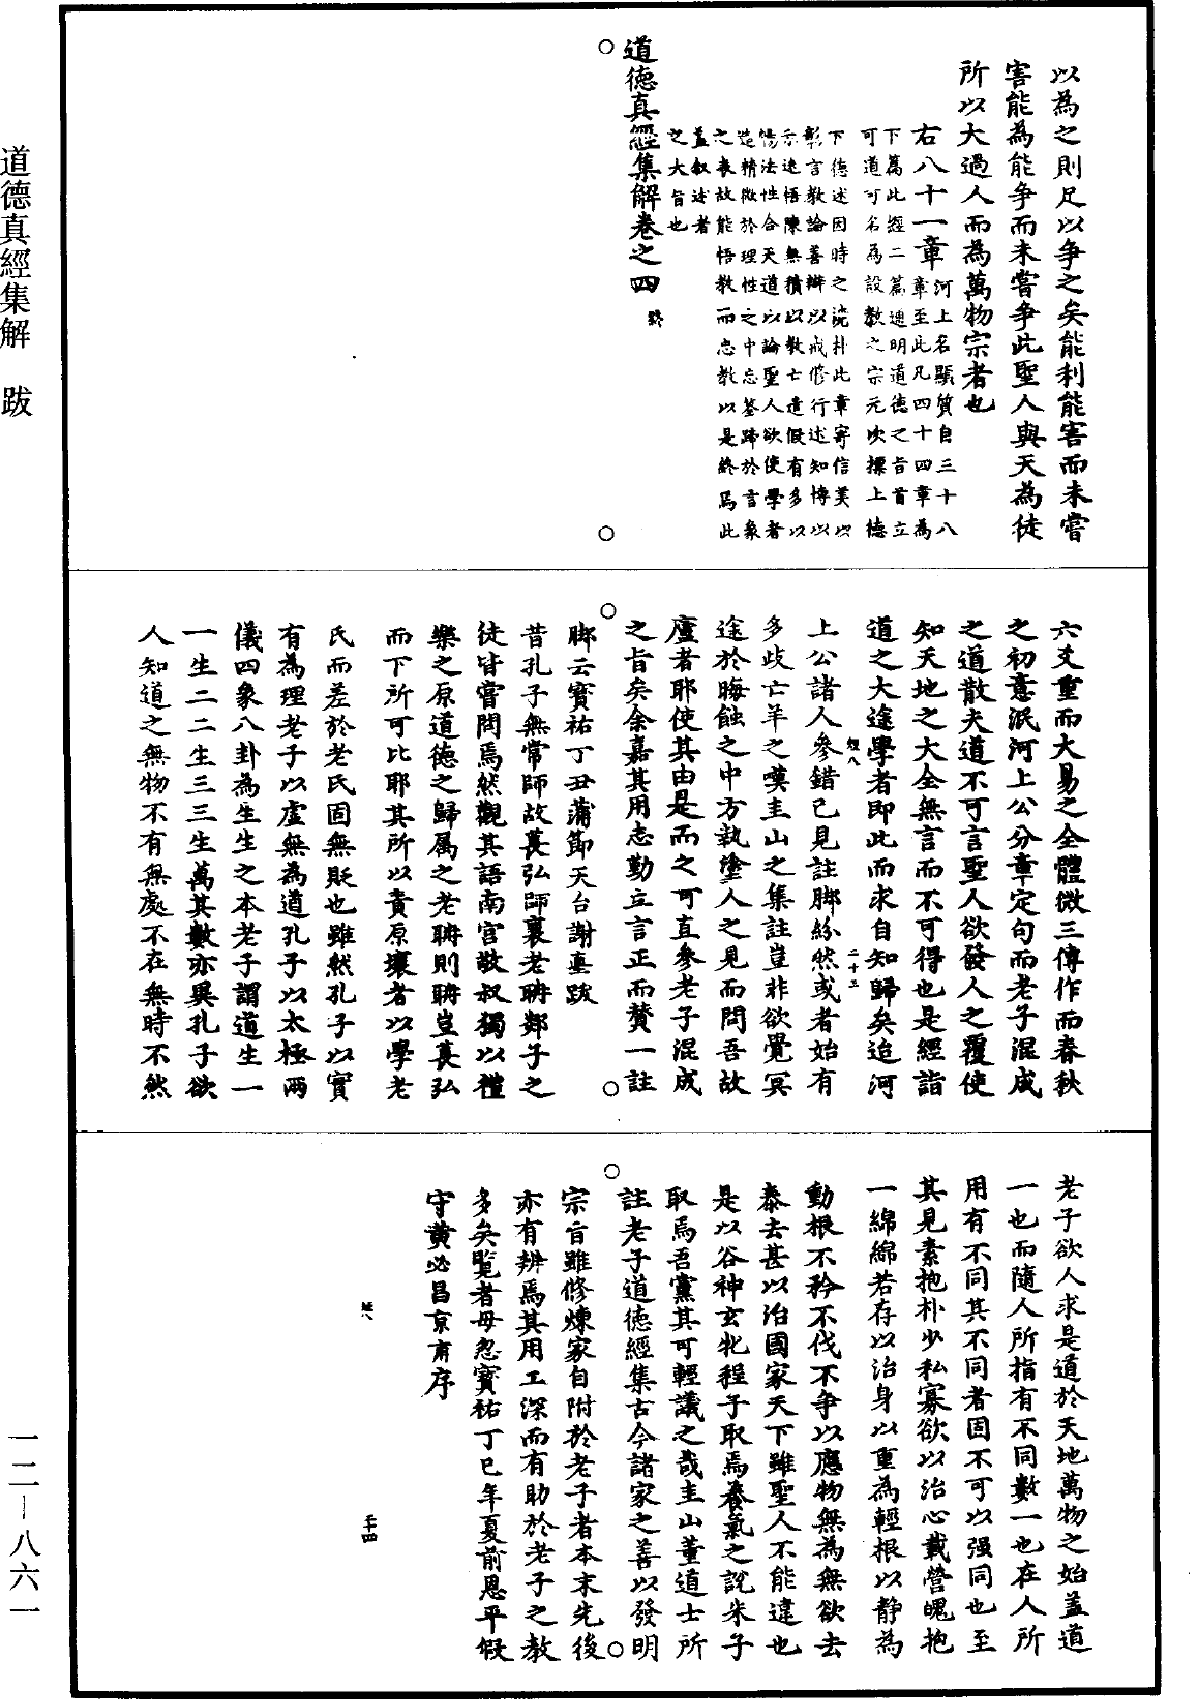 以為之則足以爭之矣能利能害而未嘗
害能為能爭而未嘗爭此聖人與天為徒
所以大過人而為萬物宗者也
右八十一章
河上名顯質自三十八
章至此凡四十四章為
下篇此經二篇連明道德之旨首立
可道可名為設教之宗元次摽上德
下德述因時之澆朴此章寄信美以
彰言教論善辯以戒修行述知博以
示遠悟陳無積以教亡遣假有多以
暢法性合天道以論聖人欲使學者
造精微於理性之中忘筌蹄於言象
之表故能悟教而忘教以是終焉此
蓋叙述者
之大旨也
道德真經集解卷之四
終
六爻重而大易之全體微三傳作而春秋
之初意泯河上公分章定句而老子混成
之道散夫道不可言聖人欲發人之覆使
知天地之大全無言而不可得也是經詣
道之大途學者即此而求自知歸矣迨河
短八
二十三
上公諸人參錯己見註脚紛然或者始有
多歧亡羊之嘆圭山之集註豈非欲覺冥
途於晦蝕之中方執塗人之見而問吾故
廬者耶使其由是而之可直參老子混成
之旨矣余嘉其用志勤立言正而贅一註
脚云寶祐丁丑蒲節天台謝㙷跋
昔孔子無常師故萇弘師襄老聃郯子之
徒皆嘗問焉然觀其語南宮敬叔獨以禮
樂之原道德之歸屬之老聃則聃豈萇弘
而下所可比耶其所以責原壤者以學老
氏而差於老氏固無貶也雖然孔子以實
有為理老子以虛無為道孔子以太極兩
儀四象八卦為生生之本老子謂道生一
一生二二生三三生萬其數亦異孔子欲
人知道之無物不有無處不在無時不然
老子欲人求是道於天地萬物之始蓋道
一也而隨人所指有不同數一也在人所
用有不同其不同者固不可以强同也至
其見素抱朴少私寡欲以治心載營魄抱
一綿綿若存以治身以重為輕根以靜為
動根不矜不伐不爭以應物無為無欲去
泰去甚以治國家天下雖聖人不能違也
是以谷神玄牝程子取焉養氣之說朱子
取焉吾黨其可輕議之哉圭山董道士所
註老子道德經集古今諸家之善以發明
宗旨雖修煉家自附於老子者本末先後
亦有辨焉其用工深而有助於老子之教
多矣覽者毋忽寶祐丁巳年夏前恩平假
守黃必昌京甫序
短八
二十四
道德真經集解 跋
一二—八六一